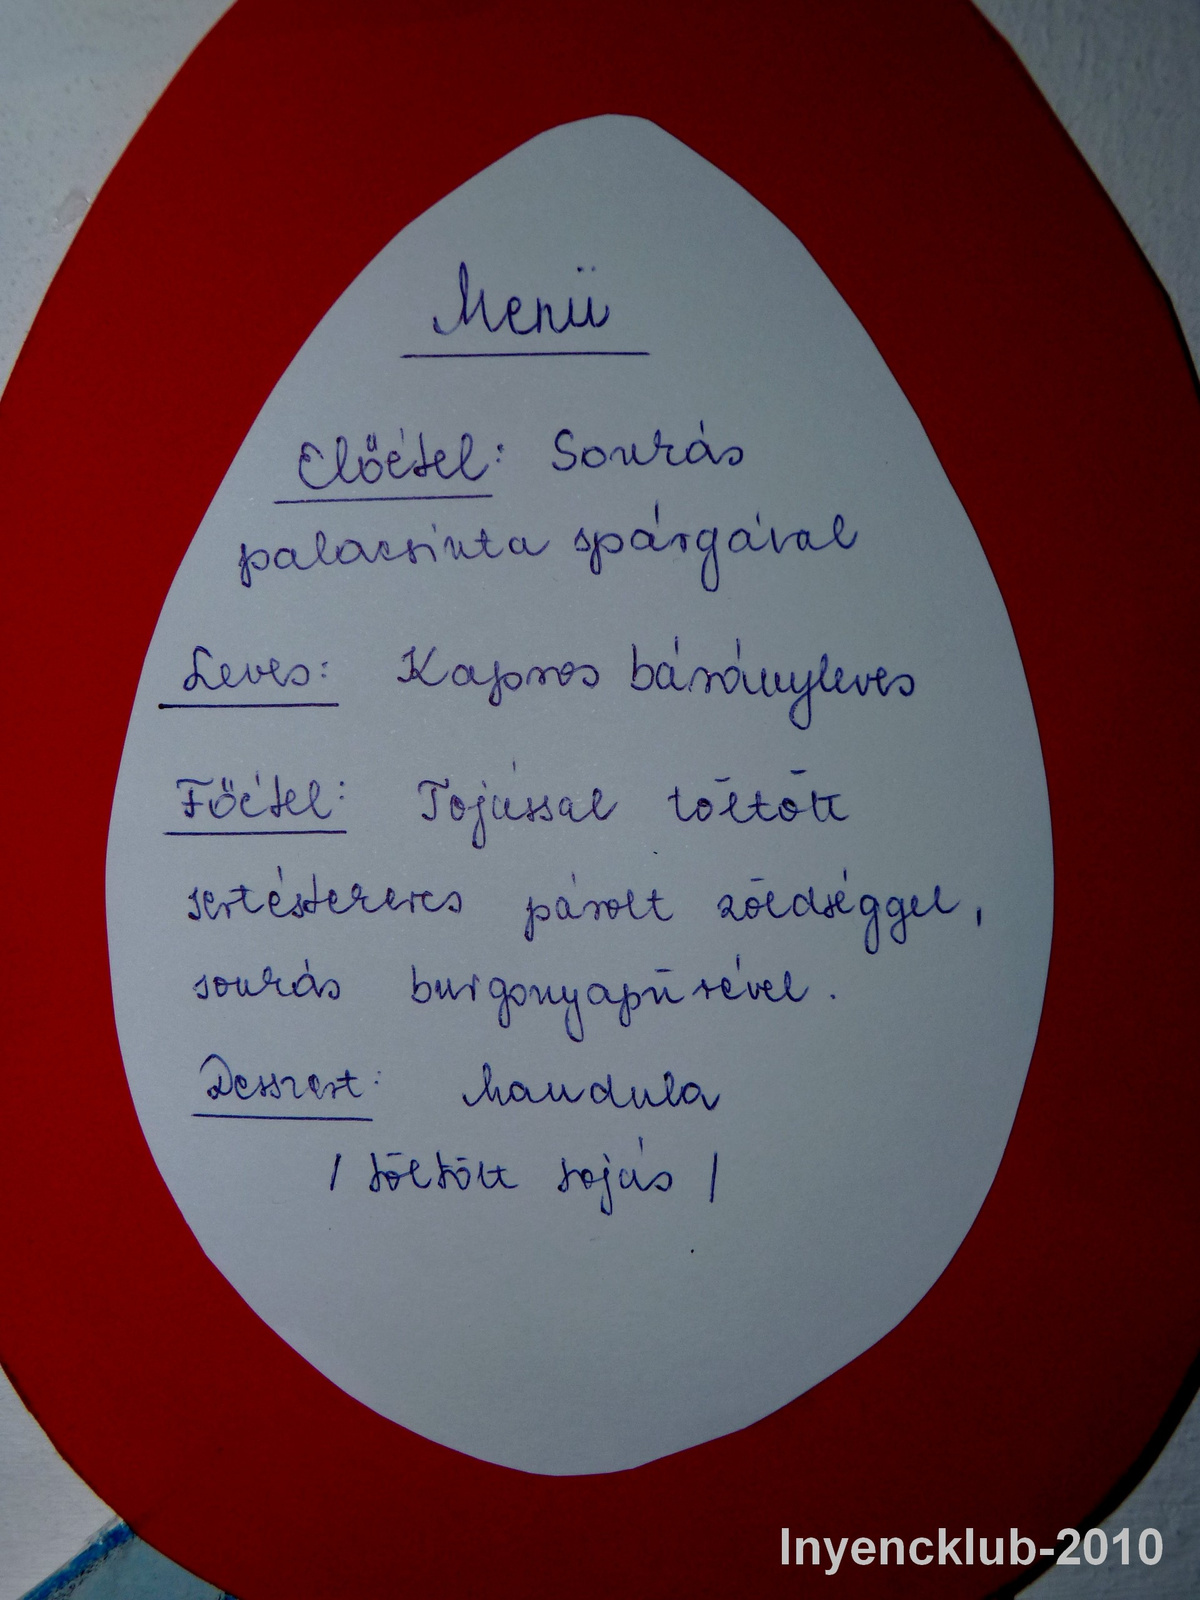 Menü
Előétel: Sonkás
palacsinta spárgával
Leves: Kapros bárányleves
Főétel: Tojással töltött
sertéstekercs párolt zöldséggel,
sonkás burgonyapürével.
Desszert: Mandula
/ töltött tojás /
Inyencklub-2010